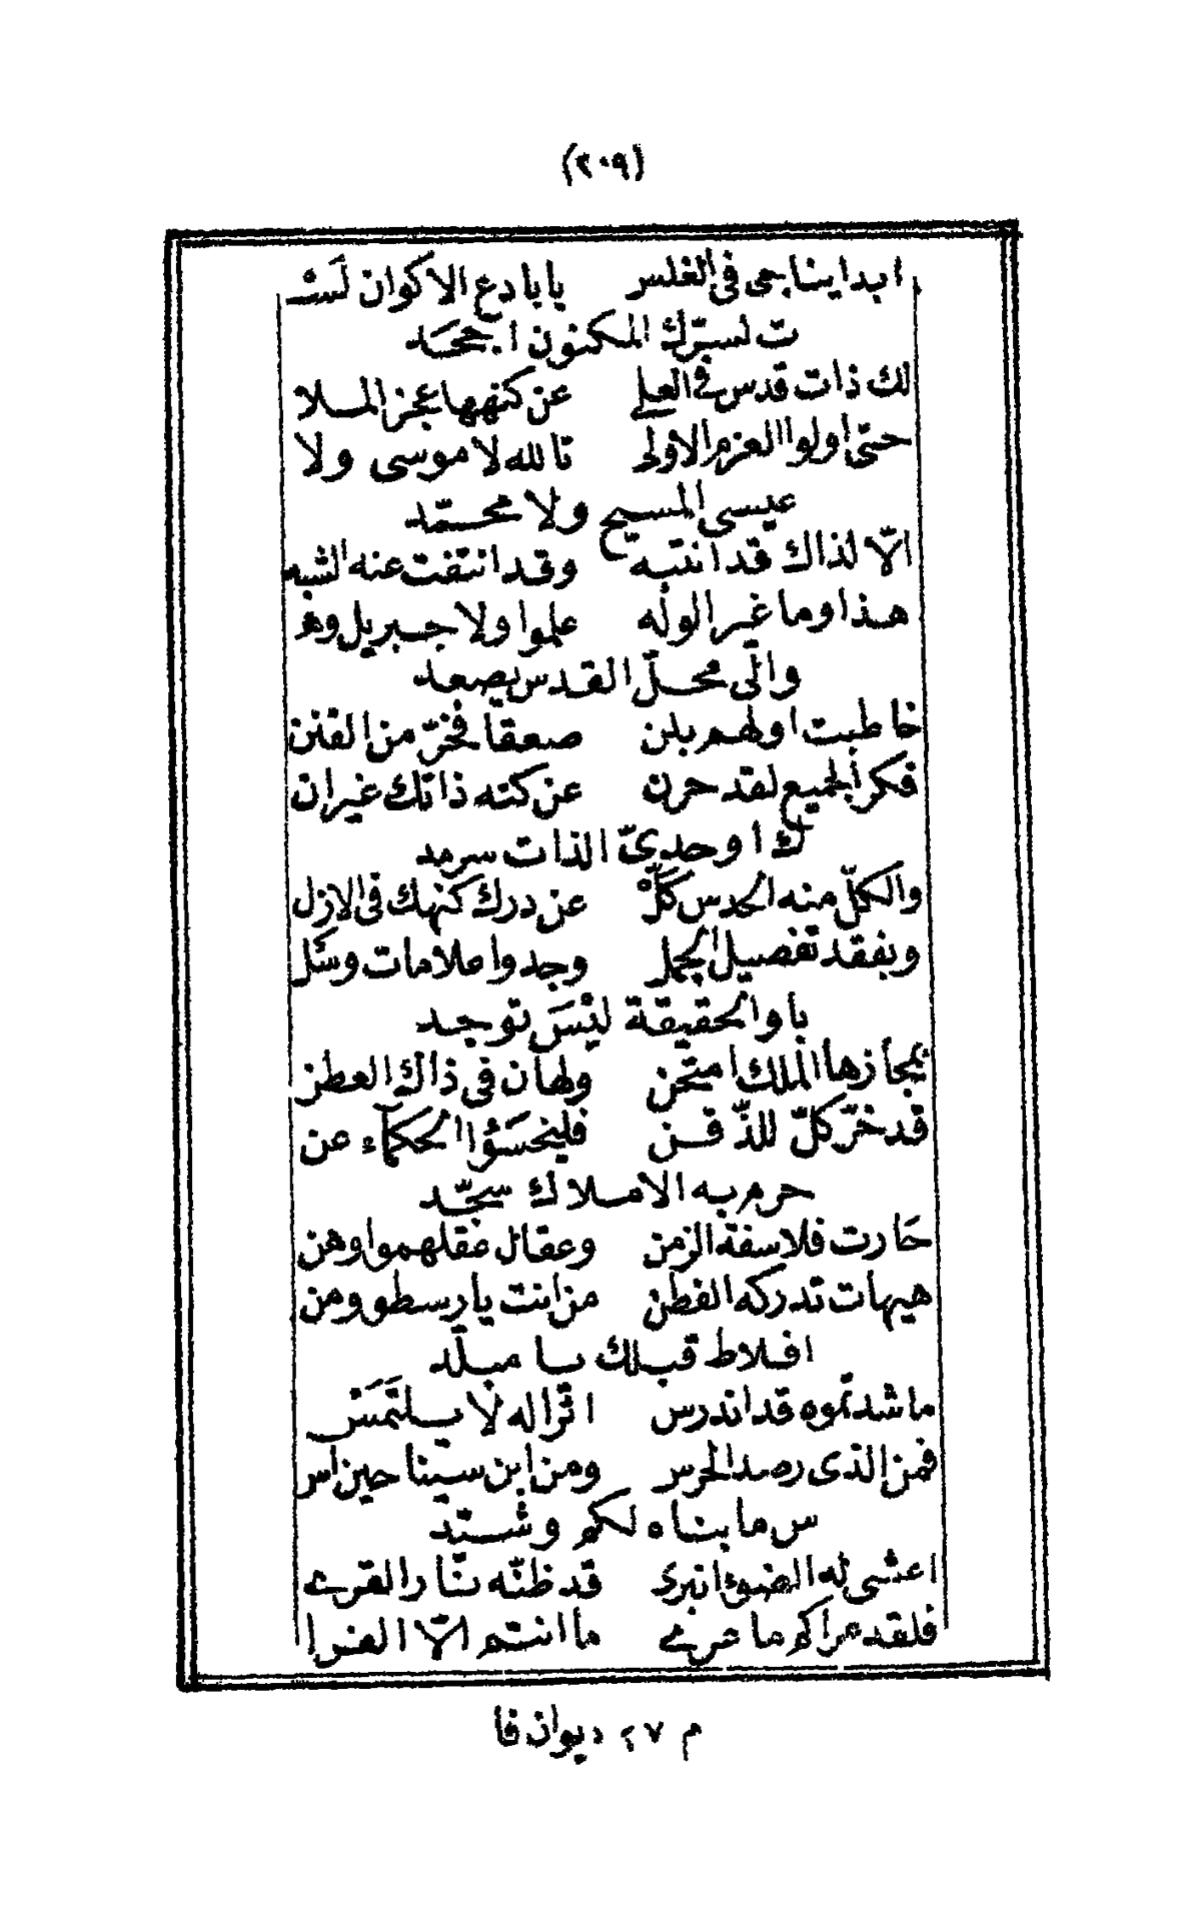 (٢٠٩)
ابدا يناجى فى الغلس يا بادع الاكوان لَسْـ
ـت لسرّك المكنون اجحَد
لك ذات قدس فى العلى عن كنهها عجز الملا
حتى اولوا العزم الاولى تالله لا موسى ولا
عيسى المسيح ولا محمّد
الّا لذاك قد انتبه وقد انتفت عنه الشبه
هذا وما غير الوله علموا ولا جبريل وهو
والّى محلّ القدس يصعد
خاطبت اولهم بلن صعقا فخرّ من القنن
فكر الجميع لقد حرن عن كنه ذاتك غير ان
ك اوحدىّ الذات سرمد
والكلّ منه الحدس كَلّْ عن درك كنهك فى الازل
وبفقد تفصيل الجمل وجدوا علامات وسَلـ
ـبا والحقيقة ليْسَ توجد
بمجازها الملك امتحن ولهان فى ذاك العطن
قد خرّ كلّ للذّقن فليخسَؤا الحكمآء عن
حرم به الاملاك سجّد
حَارت فلاسفة الزمن وعقال عقلهموا وهن
هيهات تدركه الفطن من انت يا رسطو ومن
افلاط قبلك يا مبلّد
ما شدتموه قد اندرس اثرا له لا يلتَمَسْ
فمن الذى رصد الحرس ومن ابن سينا حين اسـ
ـس ما بناه لكم وشيّد
اعشى له الضوئ انبرى قد ظنّه نارا لقرى
فلقد عراكم ما عرى ما انتم الّا الفرا
م ٢٧ ديوان فا